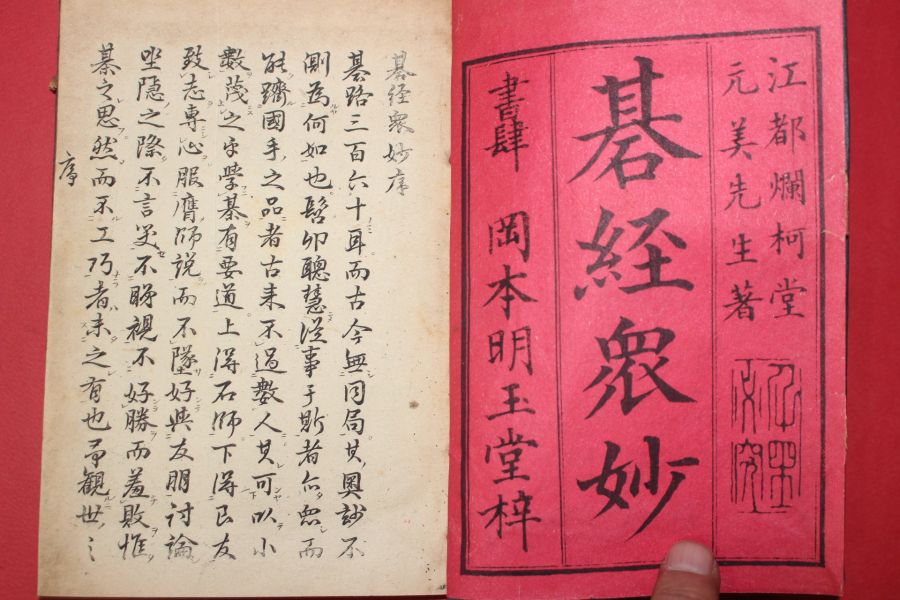 江都爛柯堂
元美先生著
碁経衆妙
書肆 岡本明玉堂梓
碁経衆妙序
碁路三百六十耳而古今無同局其奥玅不
測為何如也髫丱聰慧從事于斯者亦衆而
能躋國手之品者古来不過數人其可以小
數蔑之乎学碁有要道上得石師下得良友
致志專心服膺師説而不墜好與友朋討論
坐隱之際不言笑不睇視不好勝而羞敗惟
棊之思然而不工巧者未之有也予観世之
序